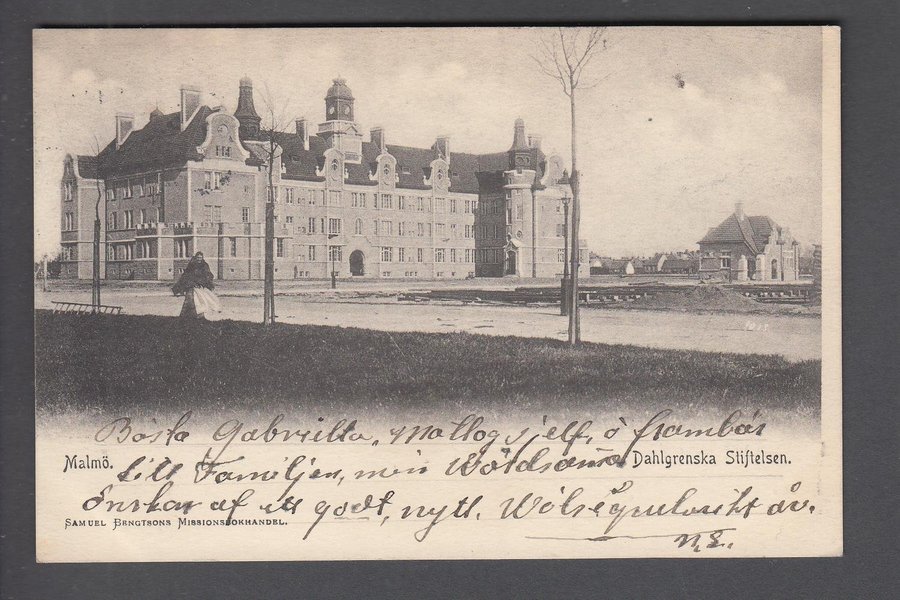 1013
Bästa Gabriella, mottog sjelf, o frambär
Malmö.
till Familjen, min Wördsamma
Dahlgrenska Stiftelsen.
önskar af ett godt, nytt, Wälsignelserikt år.
SAMUEL BENGTSONS MISSIONSBOKHANDEL.